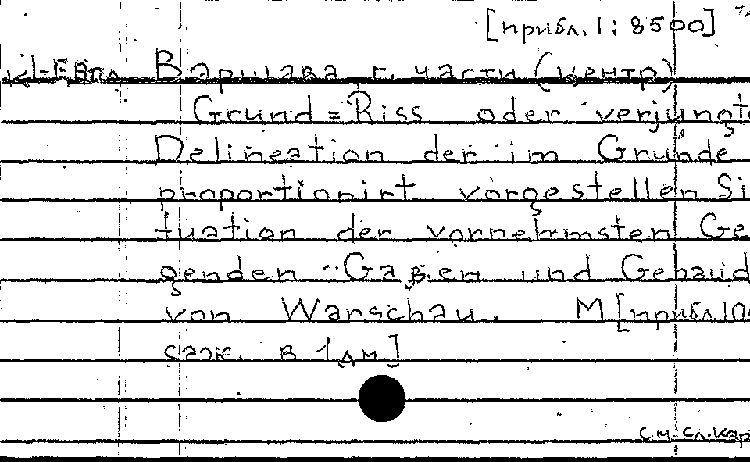 [прибл. 1:8500]
Варшава, г. части (центр)
Grund=Riss oder verjungte
Delineation der im Grunde
proportionirt vorgestellen Si
tuation der vornehmsten Ge
genden Gaßen und Gebaud
von Warschau. М [прибл. 10
саж. в 1 дм]
см. сл. кар